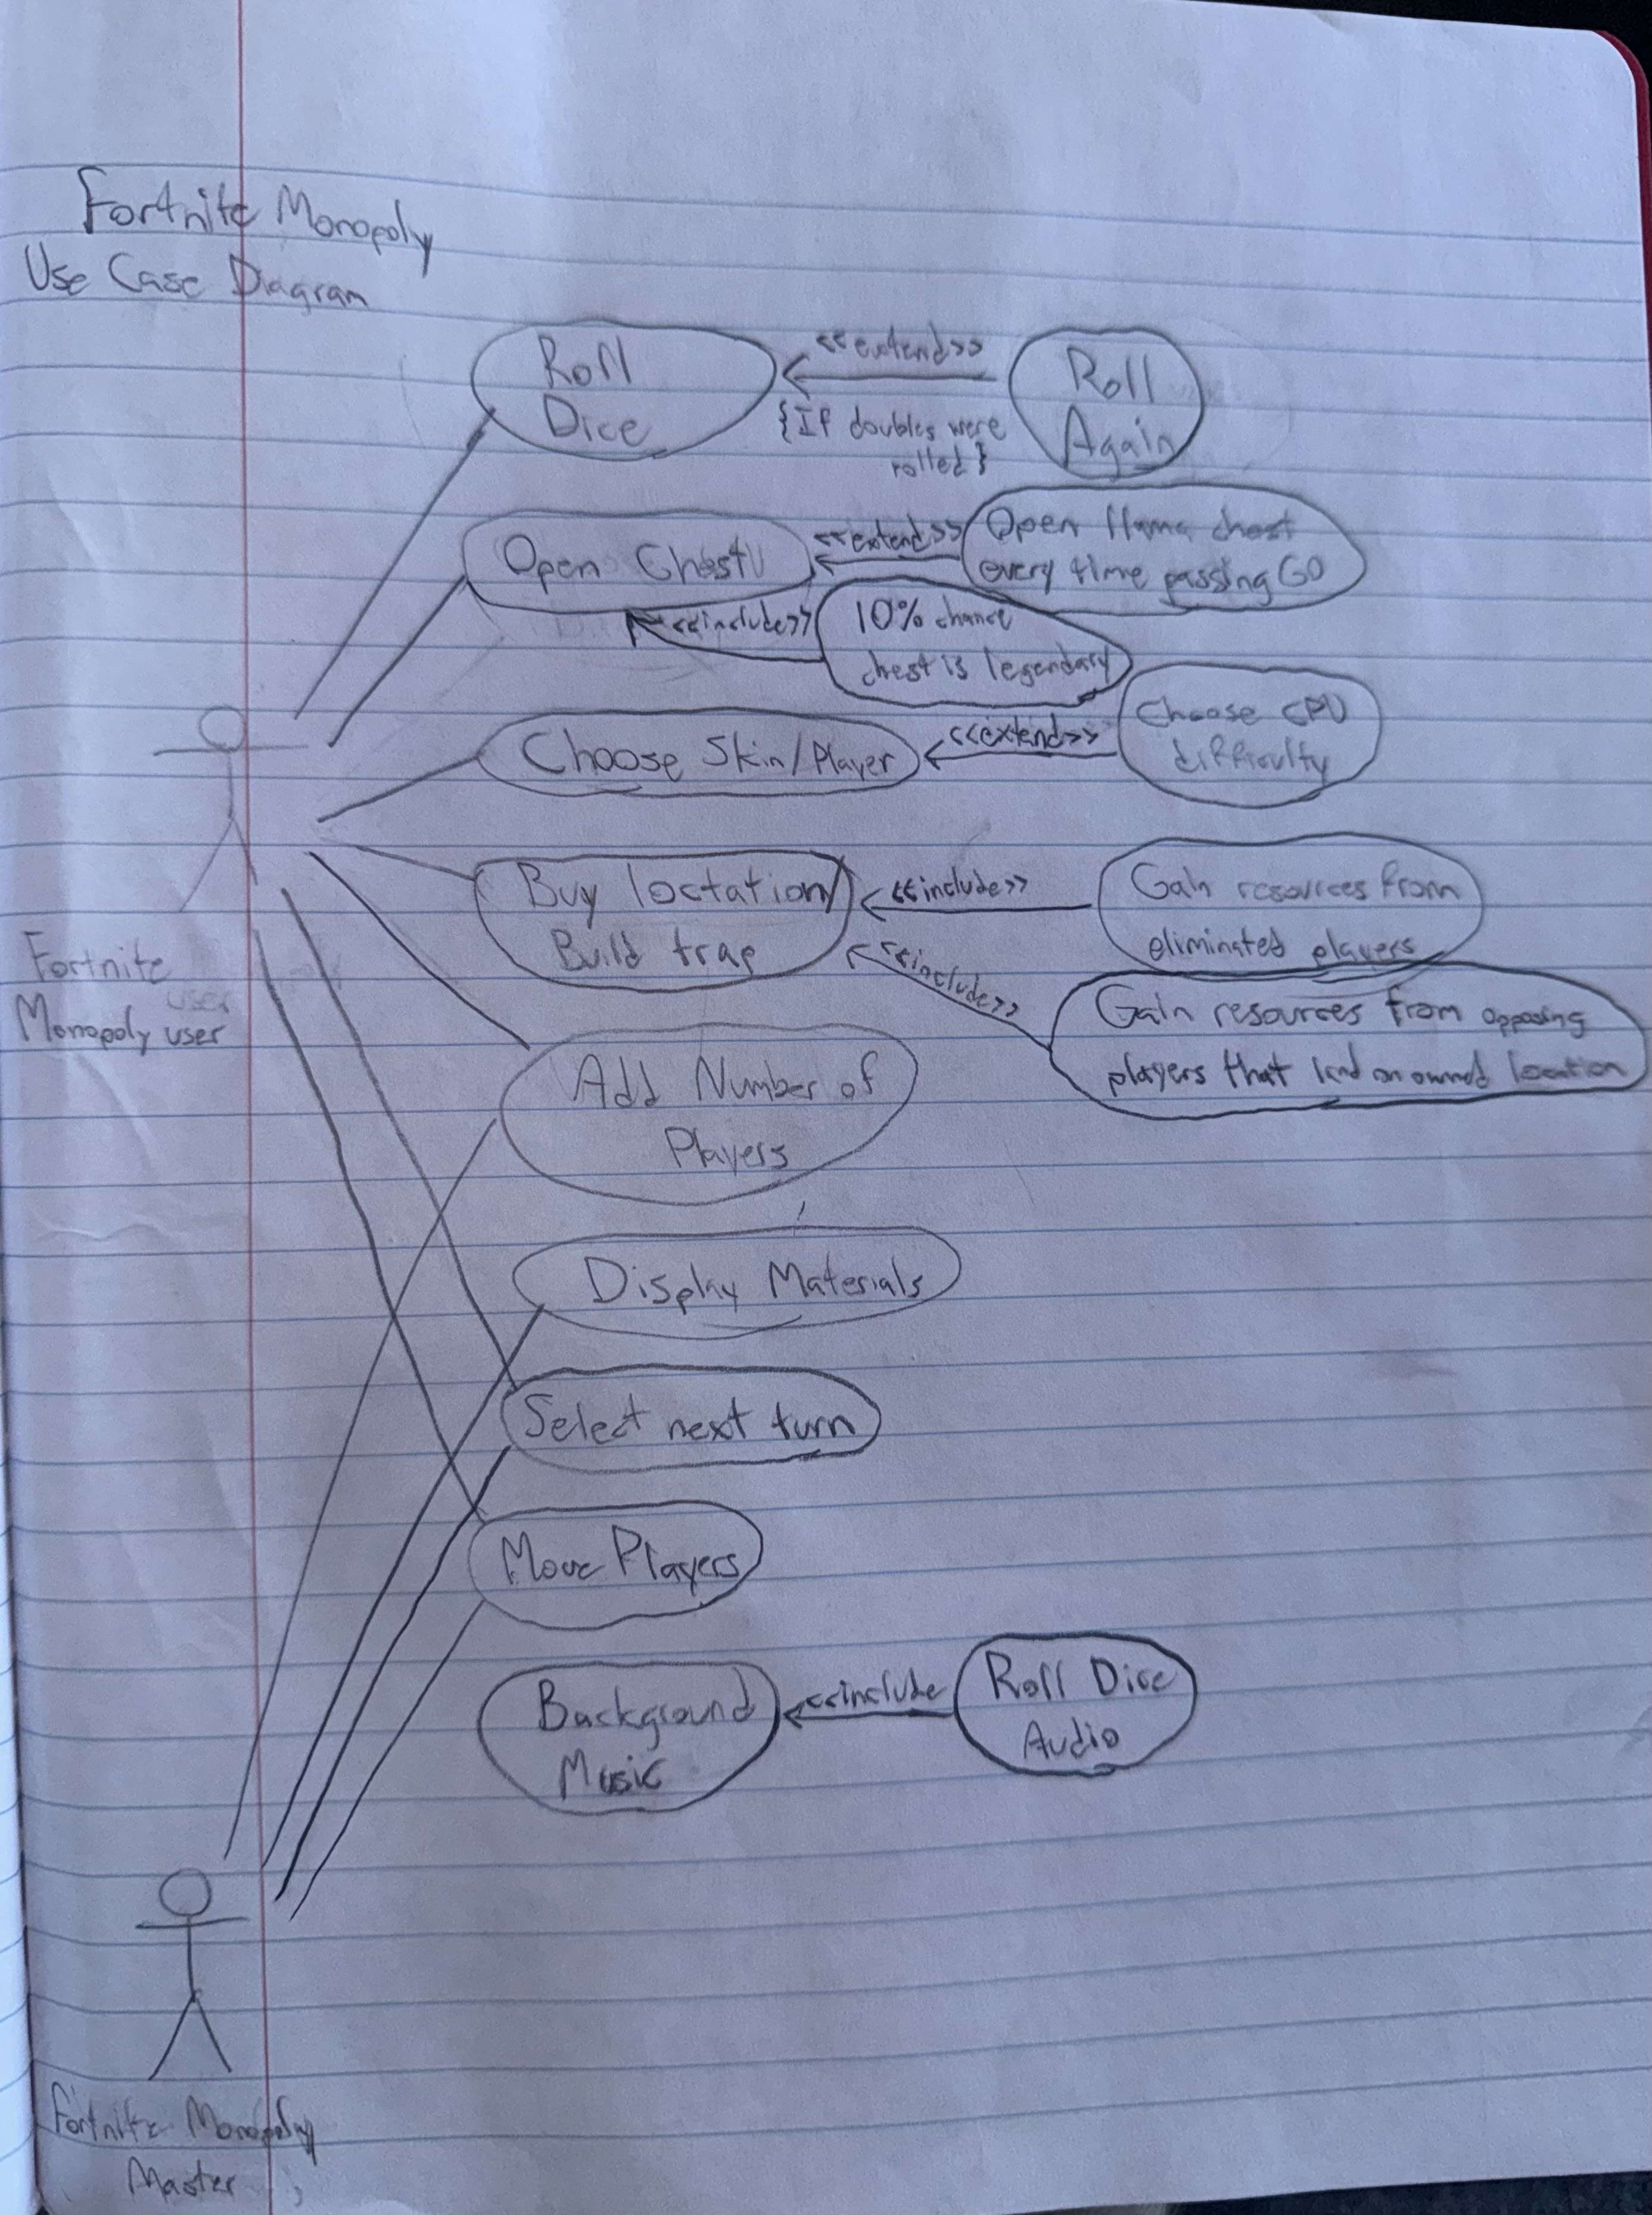 Fortnite Monopoly
Use Case Diagram
Roll
Dice
<<extend>>
{If doubles were
rolled}
Roll
Again
Open Chest
<<extend>>
Open llama chest
every time passing GO
<<include>>
10% chance
chest is legendary
Choose Skin/Player
<<extend>>
Choose CPU
difficulty
Buy loctation/
Build trap
<<include>>
Gain resources from
eliminated players
<<include>>
Gain resources from opposing
players that land on owned location
Fortnite
user
Monopoly user
Add Number of
Players
Display Materials
Select next turn
Move Players
Background
Music
<<include
Roll Dice
Audio
Fortnite Monopoly
Master